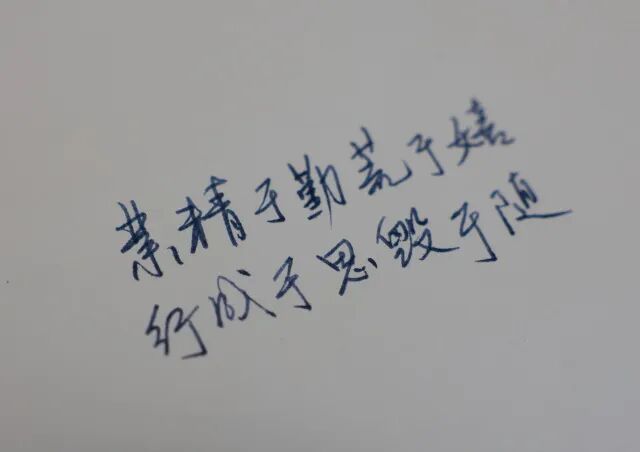 業精于勤荒于嬉
行成于思毁于随